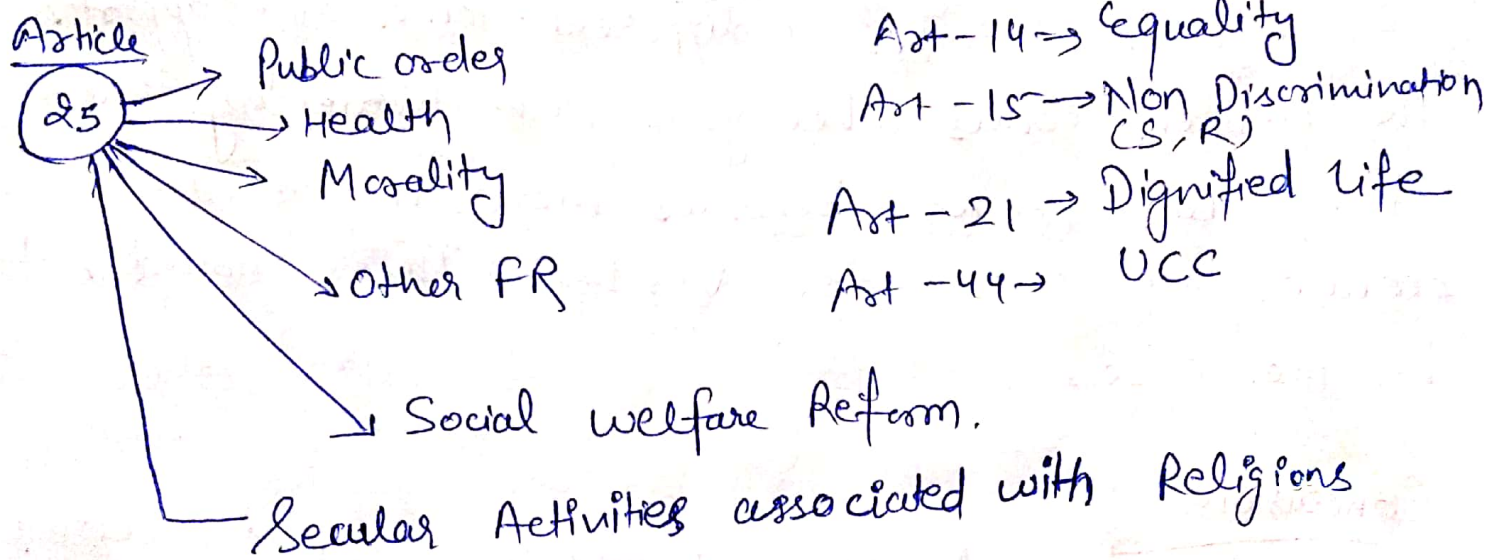 Article
25
Public order
Health
Morality
Other FR
Social welfare Reform.
Secular Activities associated with Religions
Art - 14 → Equality
Art - 15 → Non Discrimination
(S, R)
Art - 21 → Dignified life
Art - 44 → UCC